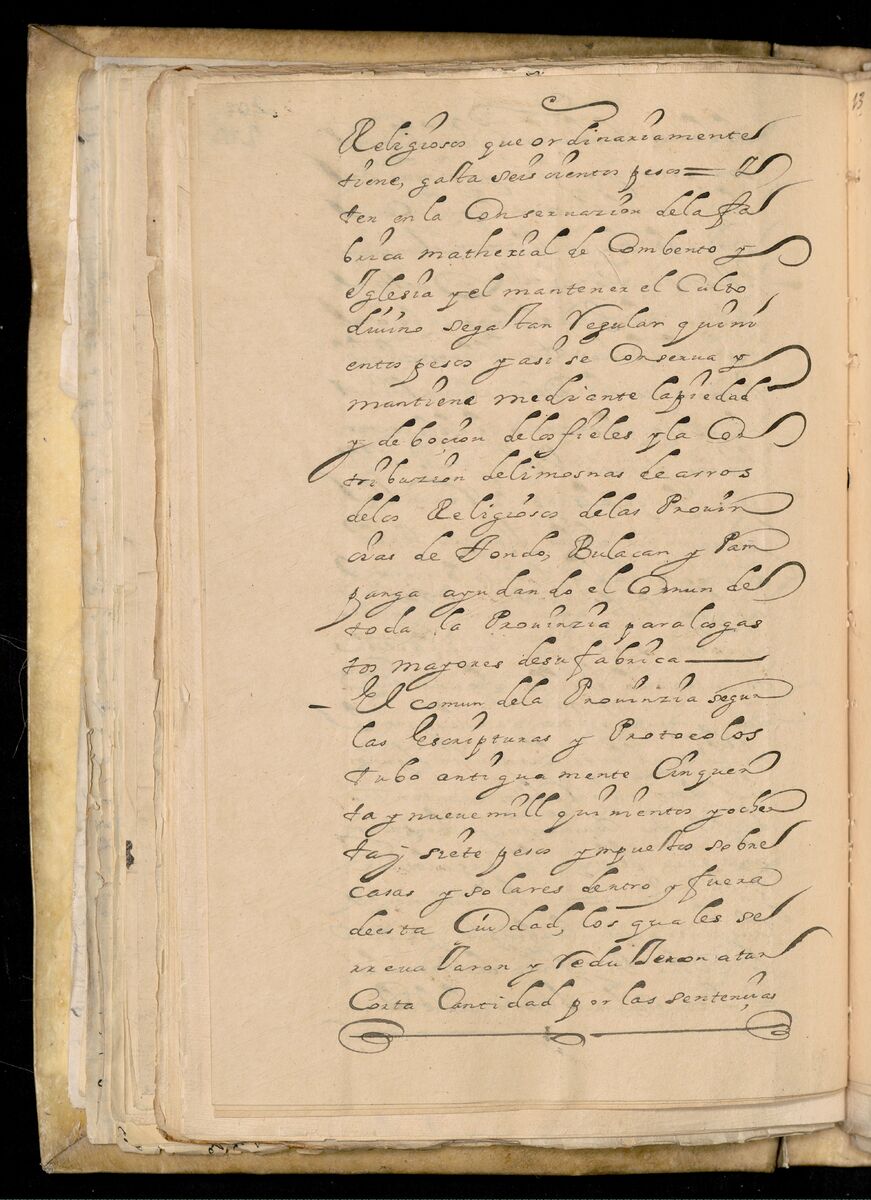 Religiosos que ordinariamente
tiene, gasta seis cientos pesos = Y
ten en la Conservazion dela fa
brica matherial de Combento y
Iglesia y el mantener el Culto
divino segastan Regular quini
entos pesos y asi se Conserva y
mantiene mediante lapiedad
y deboçion delos fieles y la Con
tribuzion delimosnas de arros
delos Religiosos delas Provin
cias de Tondo, Bulacan y Pam
panga ayudando el Comun de
toda la Provinzia paralosgas
tos mayores desufabrica
- El comun dela Provinzia segun
las Escripturas y Protocolos
tubo antiguamente Cinquen
ta y nuevemill quinientos yochen
tay siete pesos ympuestos sobre
casas y solares dentro y fuera
deesta Ciudad, los quales se
rrevajaron y Redujeron atan
Corta Cantidad por las sentençias
13